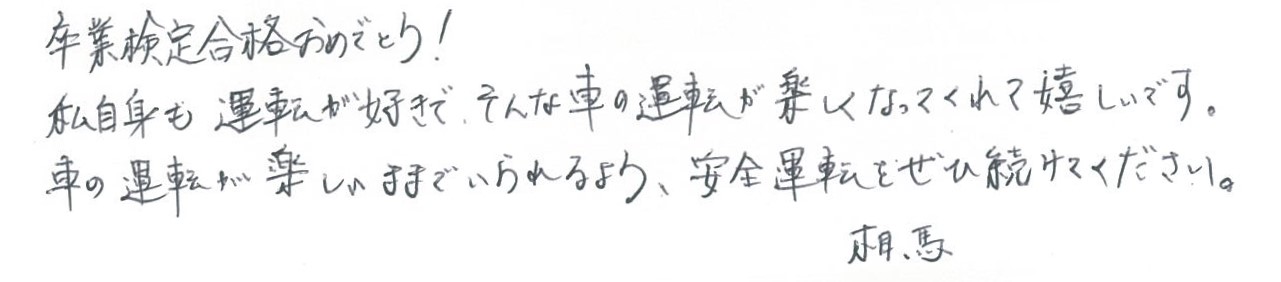 卒業検定合格おめでとう!
私自身も運転が好きで、そんな車の運転が楽しくなってくれて嬉しいです。
車の運転が楽しいままでいられるよう、安全運転をぜひ続けてください。
相馬